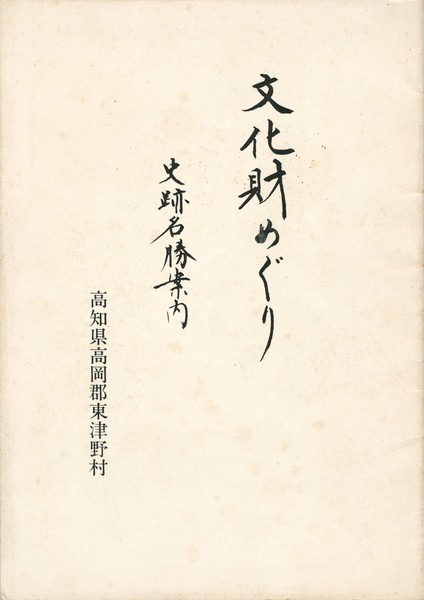 文化財めぐり
史跡名勝案内
高知県高岡郡東津野村